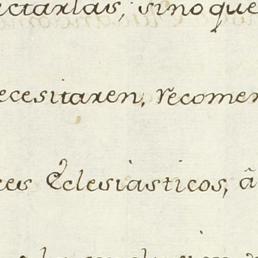 ctarlas, sino que
ecesitaren, recomen
es Eclesiasticos, â